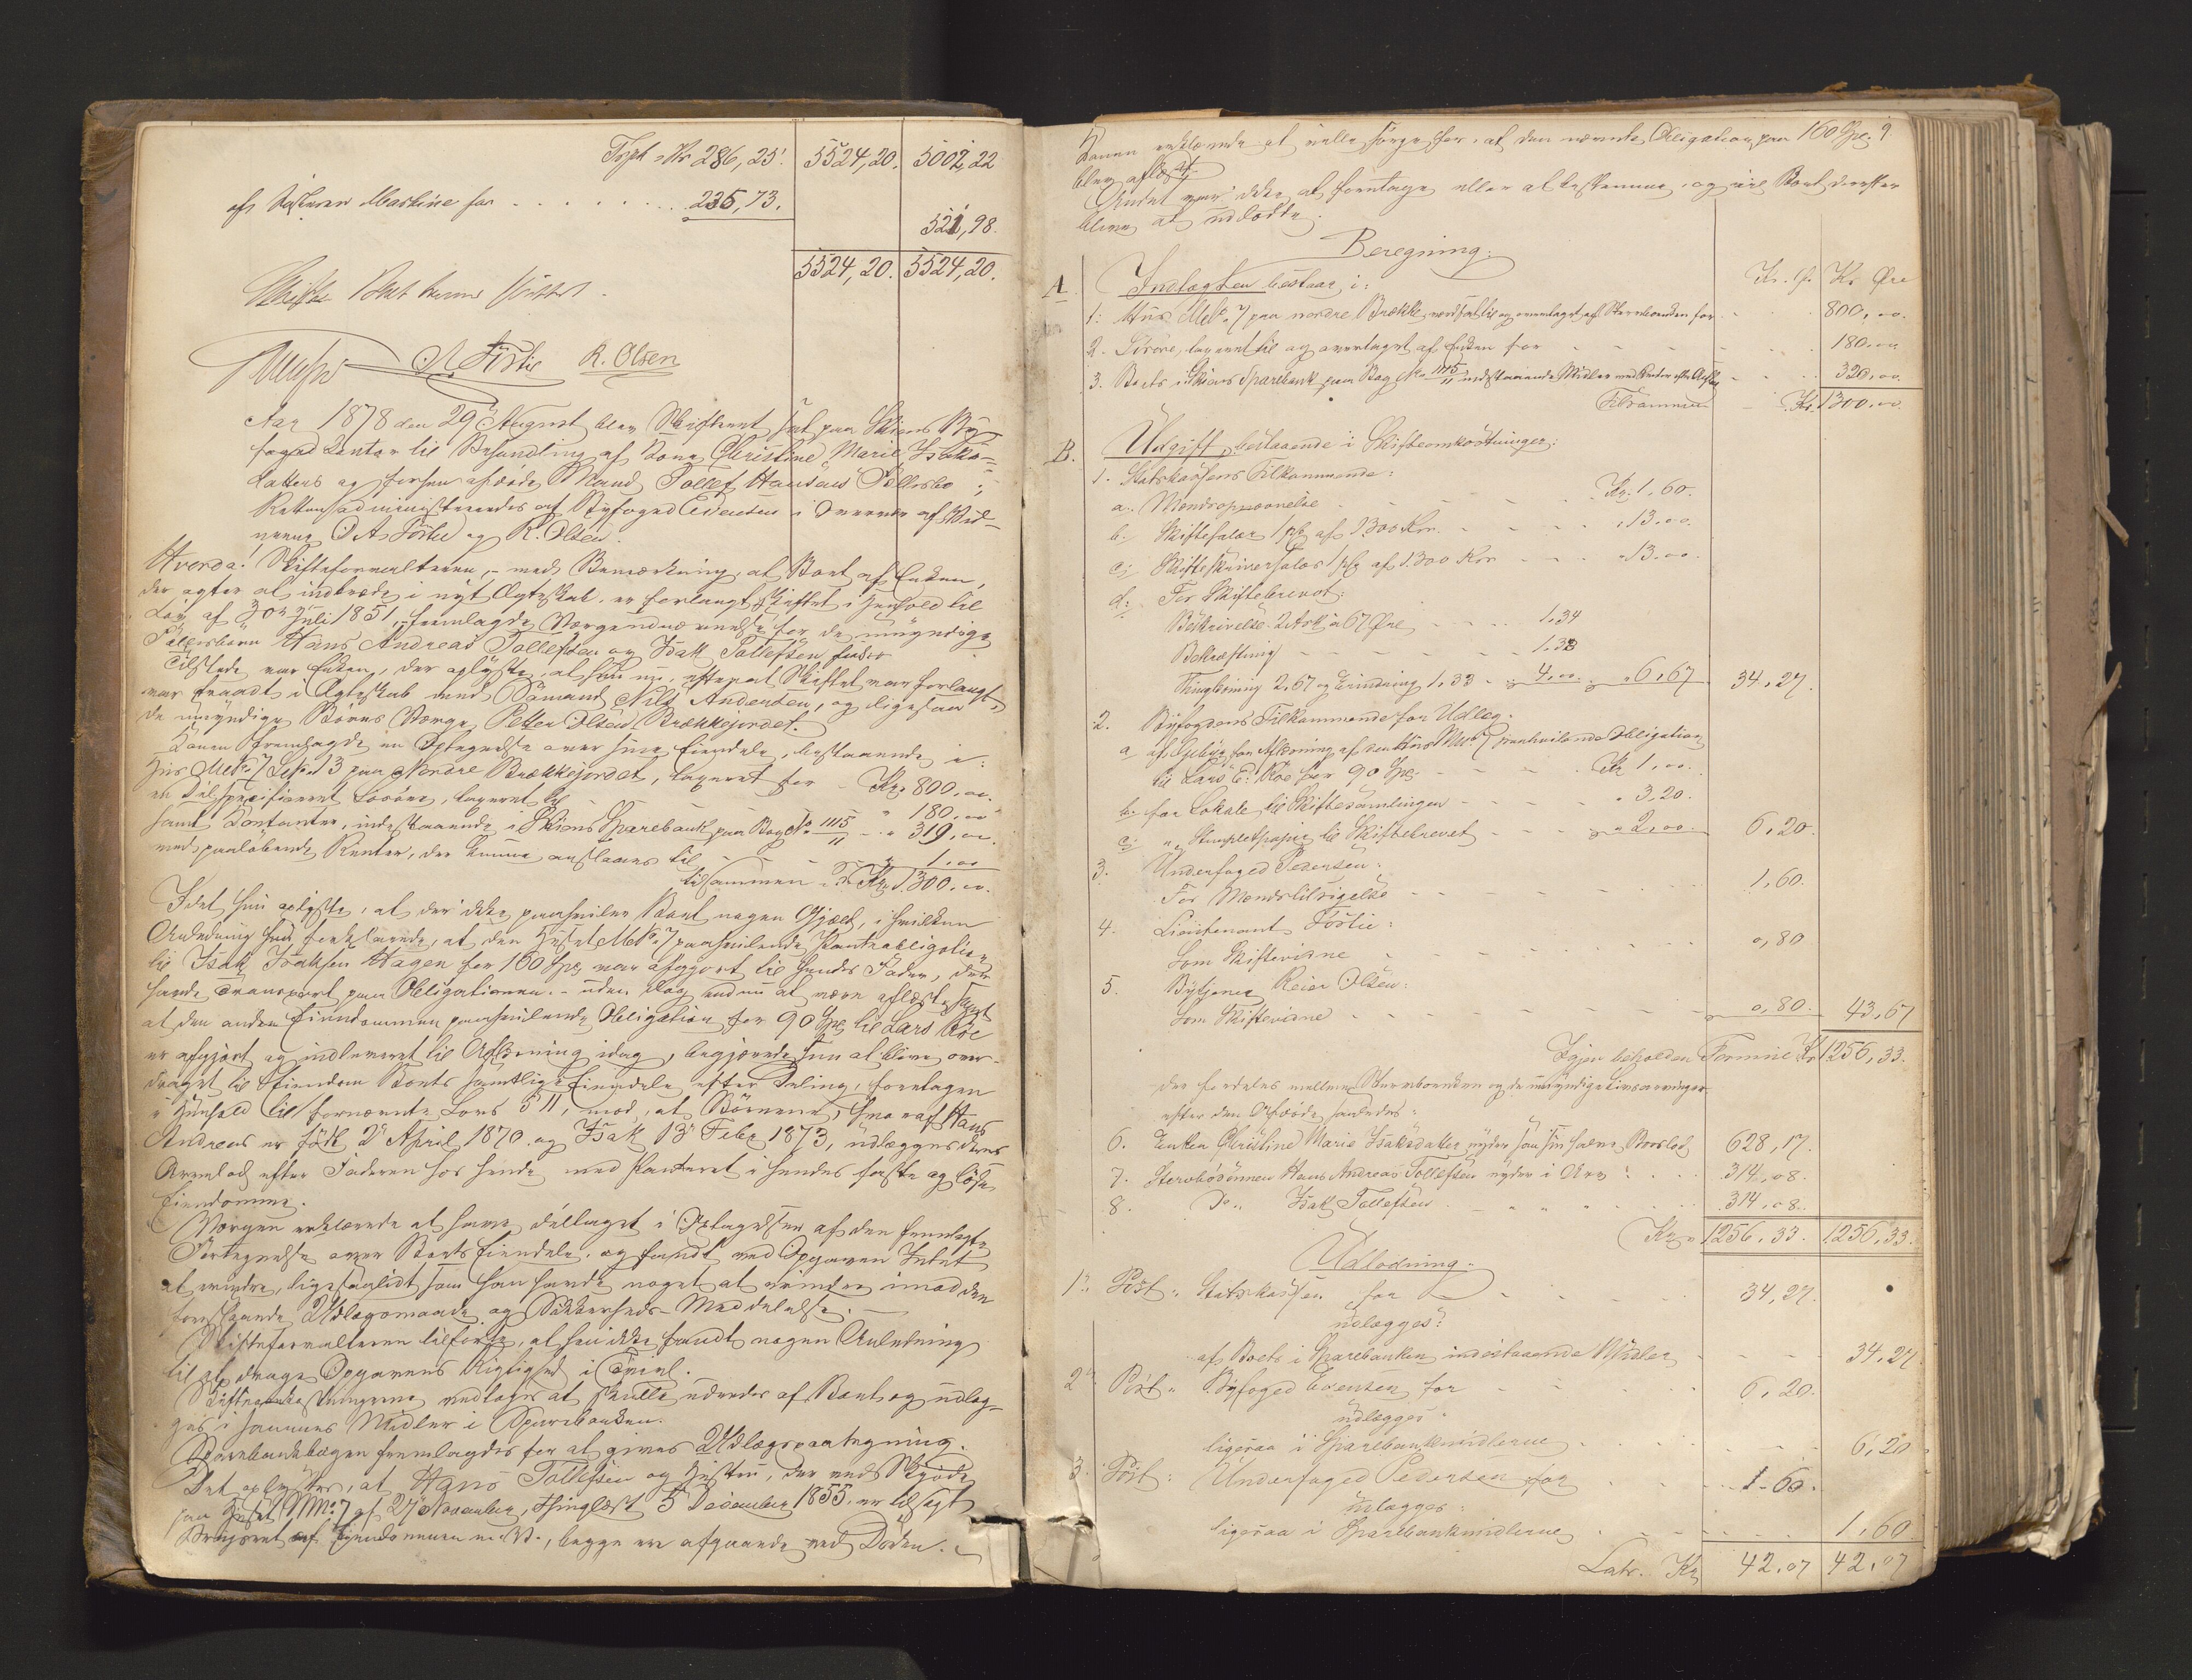 Trpt. Kr 286,25. 5524,20. 5002,22
af Skifteren Maskine for . . . . . . . 235,73.
521,98.
5524,20. 5524,20.
Skiftet blev sluttet.
A. Förtie R. Olsen
Aar 1878 den 29 August blev Skifteret sat paa Skiens By-
foged Contor til Behandling af Kone Christine Marie Isaks-
datters og hendes afdøde Mand Tollef Hansens Fællesbo;
Retten administreredes af Byfoged Edensen i Overvær af Vid-
nerne A. Förtie og R. Olsen.
Hvorda! Skifteforvalteren, med Bemærkning, at Boet af Enken,
der agter at indtræde i nyt Ægteskab, er forlangt skiftet i Henhold til
Lov af 30 Juli 1851, fremlagde Værgeudnævnelse for de umyndige
Fællesbørn Hans Andreas Tollefsen og Isak Tollefsen
Tilstede var Enken, der oplyste, at hun nu, efterat Skiftet var forlangt,
var traadt i Ægteskab med Sømand Nils Andersen, og ligesaa
de umyndige Børns Værge, Petter Olsen Brækkejordet.
Konen fremlagde en Optegnelse over sine Eiendele, bestaaende i:
Hus Mtr. 7 Lnr. 13 paa Nordre Brækkejordet, taxeret for - Kr. 800.00.
en Del specificeret Løsøre, taxeret til - " 180.00
samt Contanter, indestaaende i Skiens Sparebank paa Bog No 1115/11 - " 319.00.
med paaløbende Renter, der kunne anslaaes til - 1.00
tilsammen Kr. 1300.00.
Idet hun oplyste, at der ikke paahviler Boet nogen Gjæld, i hvilken
Anledning hun forklarede, at den Huset Mtr. 7 paahvilende Panteobligation
til Isak Isaksen Hagen for 160 Spd. var afgjort til hendes Fader, der
havde Transport paa Obligationen, uden dog endnu at være aflæst, samt
at den anden Eiendommen paahvilende Obligation for 90 Spd. til Lars Röe
er afgjort og indleveret til Aflæsning idag, begjærede hun at blive over-
draget til Eiendom Boets samtlige Eiendele efter Deling, foretagen
i Henhold til fornævnte Lovs § 11, mod, at Børnene, hvoraf Hans
Andreas er født 2 April 1870 og Isak 13 Febr 1873, udlægges deres
Arvelod efter Faderen hos hende med Panteret i hendes faste og løse
Eiendomme.
Værgen erklærede at have deltaget i Optagelsen af den fremlagte
Fortegnelse over Boets Eiendele, og fandt ved Opgaven Intet
at erindre, ligesaalidt som han havde noget at erindre imod den
foreslaaede Udlægsmaade og Sikkerheds-Meddelelse.
Skifteforvalteren tilførte, at han ikke fandt nogen Anledning
til at drage Opgavens Rigtighed i Tvivl.
Skifteomkostningerne vedtoges at skulle udredes af Boet, og udlæg-
ges i sammes Midler i Sparebanken.
Sparebankbogen fremlagdes for at gives Udlægspaategning.
Det oplystes, at Hans Tollefsen og Hustru, der ved Skjøde
paa Huset Mtr. 7 af 27 November, thinglæst 5 December 1855, er tilsagt
Brugsret af Eiendommen m.V., begge ere afgaaede ved Døden.
Konen erklærede at ville sørge for, at den nævnte Obligation paa 160 Spd. 9.
blev aflæst.
Andet var ikke at foretage eller at bestemme, og vil Boet derefter
blive at udlodde.
Beregning.
Kr. Ø. Kr. Øre
A. Indtægten bestaar i:
1. Hus Mtr. 7 paa nordre Brække, værdsat til og overtaget af Sterboenken for - 800.00.
2. Løsøre, taxeret til og overtaget af Enken for - 180.00
3. Boets i Skiens Sparebank paa Bog No 1115/11 indestaaende Midler med Renter - 320.00.
Tilsammen Kr. 1300.00.
B. Udgift, bestaaende i Skifteomkostninger:
1. Statskassens Tilkommende:
a. Mændsopnævnelse - Kr. 1,60.
b. Skiftesalær 1 pCt. af 1300 Kr. - 13.00.
c. Skifteskriversalær 1 pCt. af 1300 Kr. - 13.00.
d. For Skiftebrevet:
Beskrivelse 2 Ark à 67 Øre - 1.34
Bekræftning - 1.33
Thinglæsning 2,67 og Erindring 1,33 - 4,00 6,67 34,27.
2. Byfogdens Tilkommende for Udlæg:
a. af Gebyr for Aflæsning af den Hus Mtr. 7 paahvilende Obligation
til Lars E. Röe for 90 Spd. - Kr 1.00.
b. for Lokale til Skiftesamlingen - " 3,20.
c. " Stempletpapir til Skiftebrevet - " 2,00. 6,20.
3. Underfoged Pedersen:
For Mændstilsigelse - 1,60.
4. Lieutenant Förtie:
som Skiftevidne - 0,80
5. Bytjener Reier Olsen:
som Skiftevidne - 0,80. 43,67
Igjen beholden Formue Kr 1256,33.
der fordeles mellem Sterboenken og de umyndige Livsarvinger
efter den Afdøde saaledes:
6. Enken Christine Marie Isaksdatter nyder som sin halve Boeslod 628,17.
7. Stervbosønnen Hans Andreas Tollefsen nyder i Arv: 314,08.
8. Do. Isak Tollefsen 314,08.
Kr. 1256,33. 1256,33.
Udlodning.
1. Post. Statskassen for - 34,27.
udlægges:
af Boets i Sparebanken indestaaende Midler - 34,27
2. Post. Byfoged Edensen for - 6,20.
udlægges:
ligesaa i Sparebankmidlerne - 6,20
3. Post. Underfoged Pedersen for - 1-60.
udlægges:
ligesaa i Sparebankmidlerne - 1,60
Latr. Kr 42,07 42,07